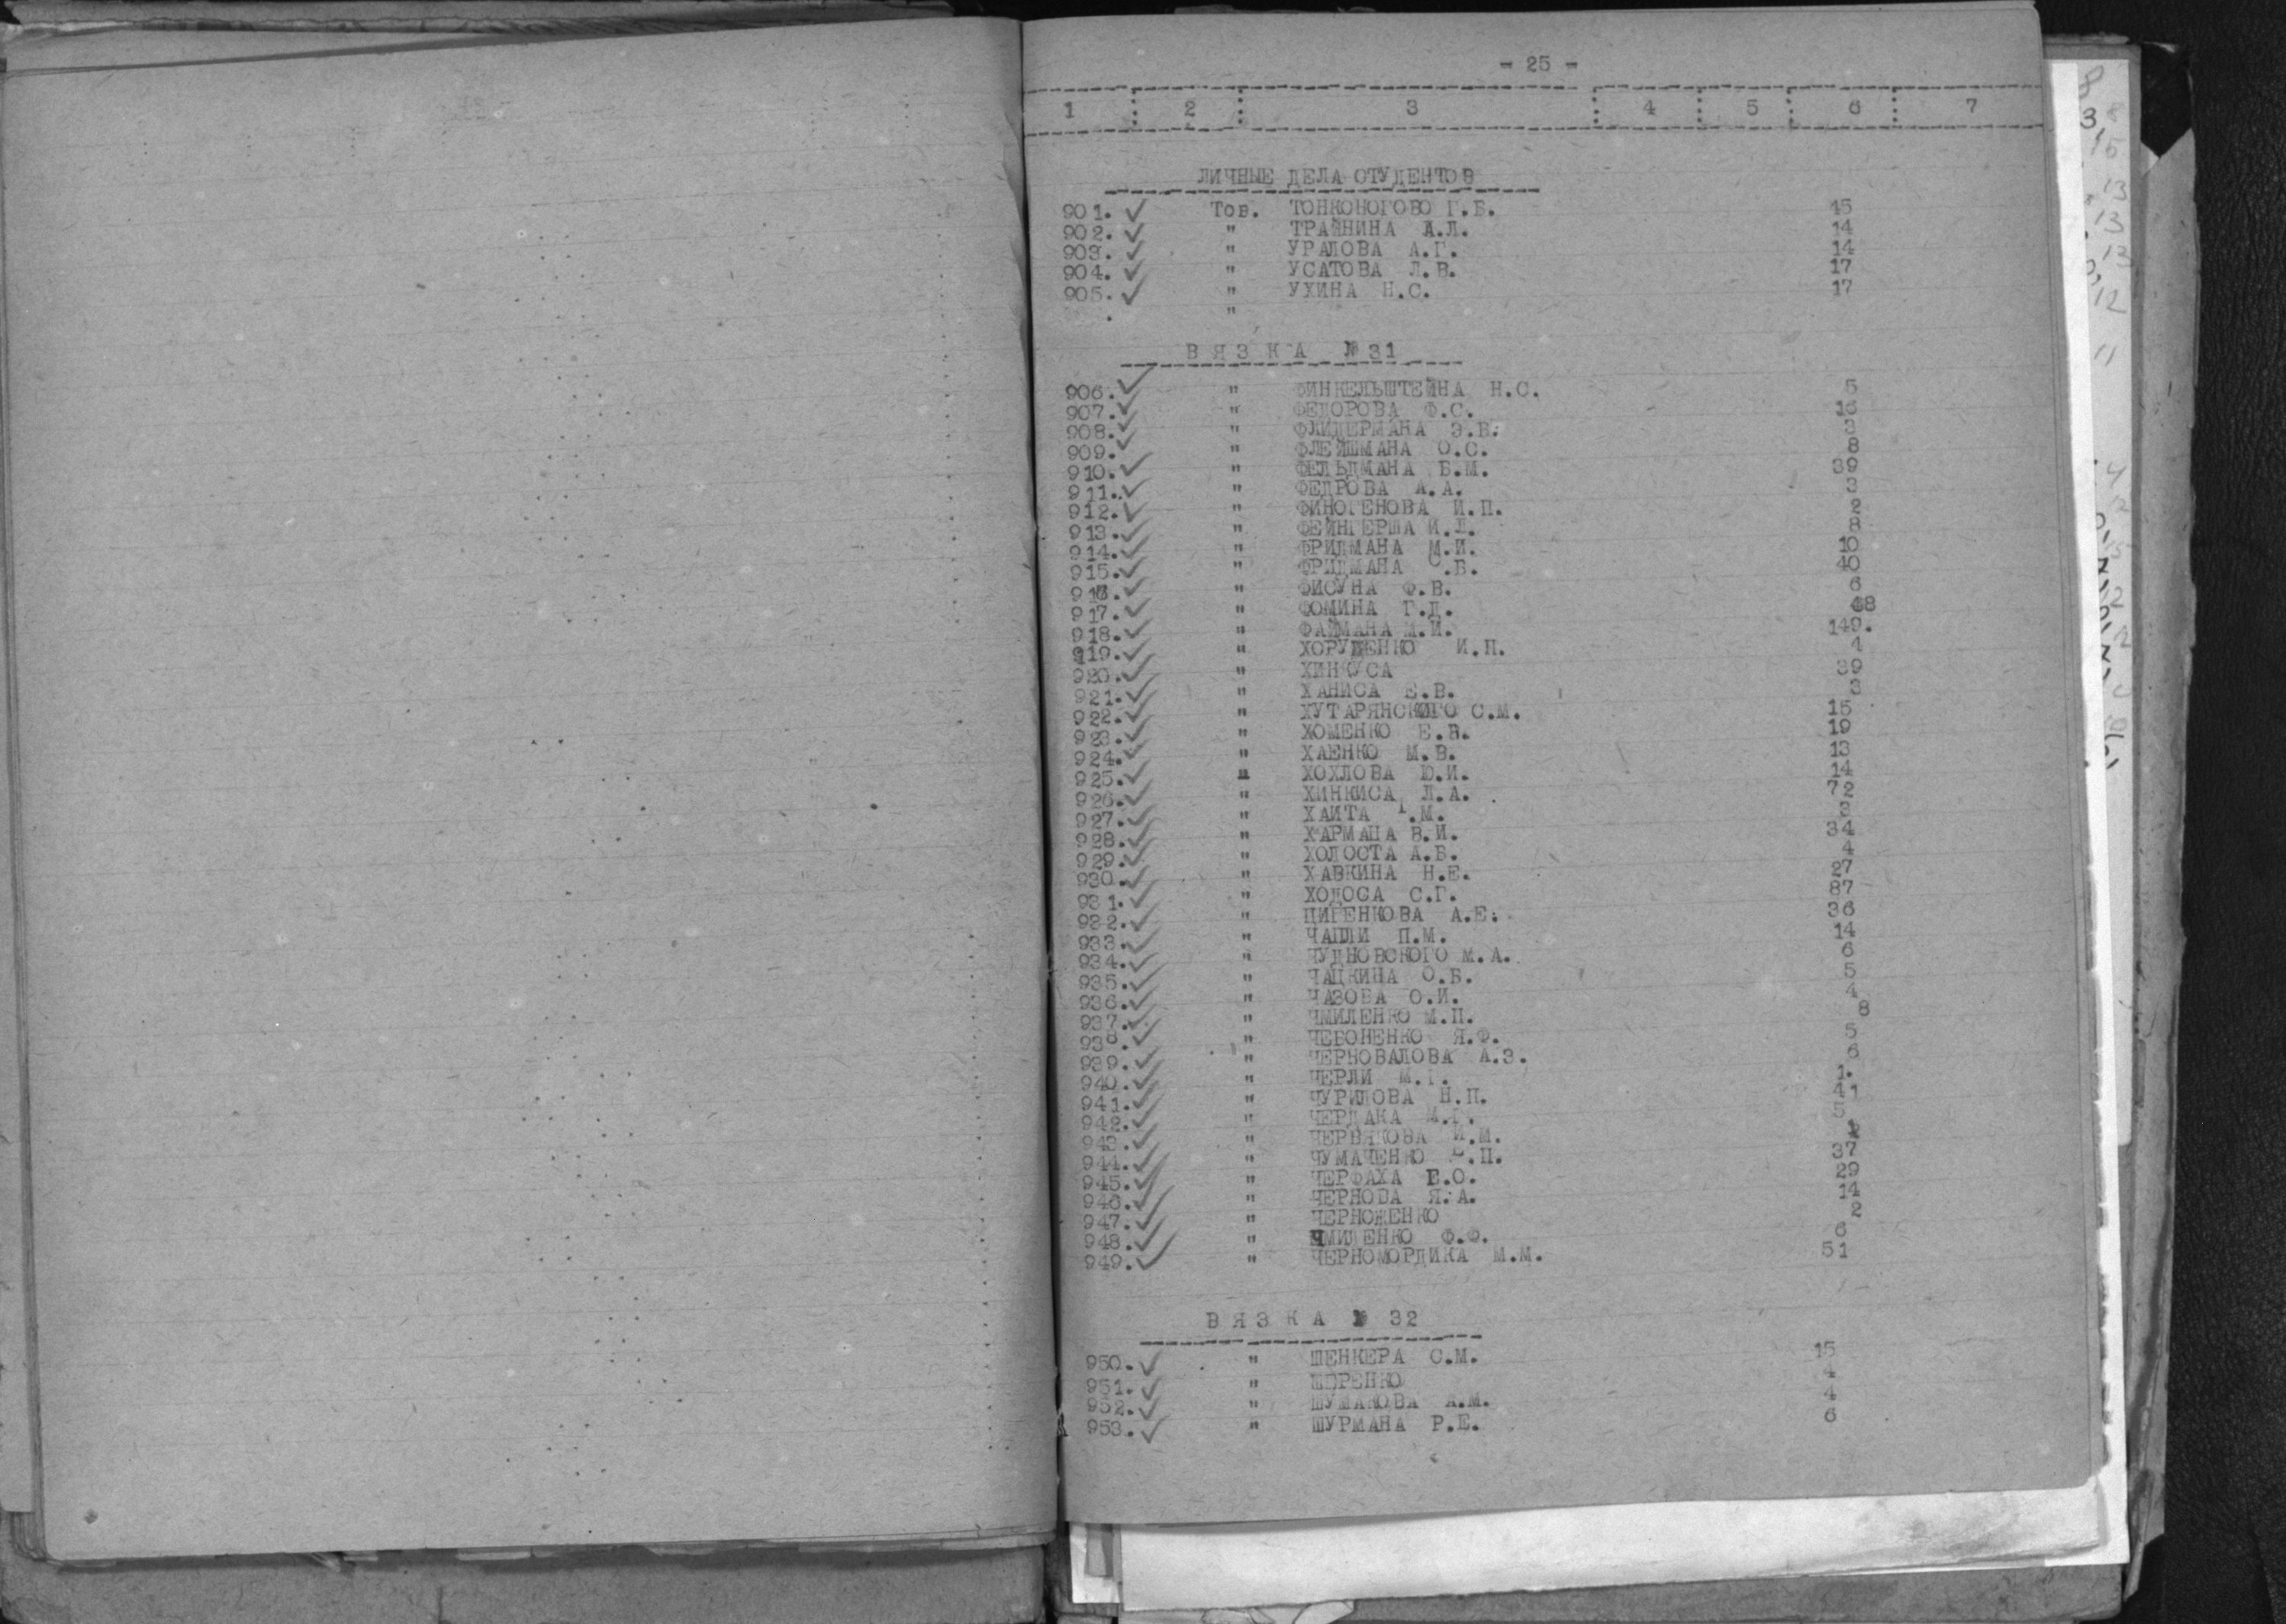 - 25 -
1 : 2 : 3 : 4 : 5 : 6 : 7
ЛИЧНЫЕ ДЕЛА СТУДЕНТОВ
901. ✓ Тов. ТОНКОНОГОВО Г.Б. 15
902. ✓ " ТРАЙНИНА А.Л. 14
903. ✓ " УРАЛОВА А.Г. 14
904. ✓ " УСАТОВА Л.В. 17
905. ✓ " УХИНА Н.С. 17
. "
ВЯЗКА № 31
906. ✓ " ФИНКЕЛЬШТЕЙНА Н.С. 5
907. ✓ " ФЕДОРОВА Ф.С. 16
908. ✓ " ФЛИДЕРМАНА Э.В. 3
909. ✓ " ФЛЕЙШМАНА О.С. 8
910. ✓ " ФЕЛЬДМАНА Б.М. 39
911. ✓ " ФЕДРОВА А.А. 3
912. ✓ " ФИНОГЕНОВА И.П. 2
913. ✓ " ФЕЙНГЕРША И.Л. 8
914. ✓ " ФРИДМАНА М.И. 10
915. ✓ " ФРИДМАНА С.Б. 40
916. ✓ " ФИСУНА Ф.В. 6
917. ✓ " ФОМИНА Г.Д. 48
918. ✓ " ФАЙМАНА М.И. 149.
919. ✓ " ХОРУЖЕНКО И.П. 4
920. ✓ " ХИНКУСА 39
921. ✓ " ХАНИСА Е.В. 3
922. ✓ " ХУТАРЯНСКОГО С.М. 15
923. ✓ " ХОМЕНКО Е.В. 19
924. ✓ " ХАЕНКО М.В. 13
925. ✓ " ХОХЛОВА Ю.И. 14
926. ✓ " ХИНКИСА Л.А. 72
927. ✓ " ХАИТА Г.М. 3
928. ✓ " ХАРМАЦА В.И. 34
929. ✓ " ХОЛОСТА А.Б. 4
930. ✓ " ХАВКИНА Н.Е. 27
931. ✓ " ХОДОСА С.Г. 87
932. ✓ " ЦИГЕНКОВА А.Е. 36
933. ✓ " ЧАПЛИ П.М. 14
934. ✓ " ЧУДНОВСКОГО М.А. 6
935. ✓ " ЧАЦКИНА О.Б. 5
936. ✓ " ЧАЗОВА О.И. 4
937. ✓ " ЧМИЛЕНКО М.П. 8
938. ✓ " ЧЕБОНЕНКО Я.Ф. 5
939. ✓ " ЧЕРНОВАЛОВА А.З. 6
940. ✓ " ЧЕРЛИ М.Г. 1.
941. ✓ " ЧУРИЛОВА Н.П. 41
942. ✓ " ЧЕРДАКА М.Г. 5
943. ✓ " ЧЕРВЯКОВА И.М.
944. ✓ " ЧУМАЧЕНКО .П. 37
945. ✓ " ЧЕРФАХА В.О. 29
946. ✓ " ЧЕРНОВА Я.А. 14
947. ✓ " ЧЕРНОЖЕНКО 2
948. ✓ " ЧМИЛЕНКО Ф.Ф. 6
949. ✓ " ЧЕРНОМОРДИКА М.М. 51
ВЯЗКА № 32
950. ✓ " ШЕНКЕРА С.М. 15
951. ✓ " ШЕРЕНКО 4
952. ✓ " ШУМАКОВА А.М. 4
953. ✓ " ШУРМАНА Р.Е. 6